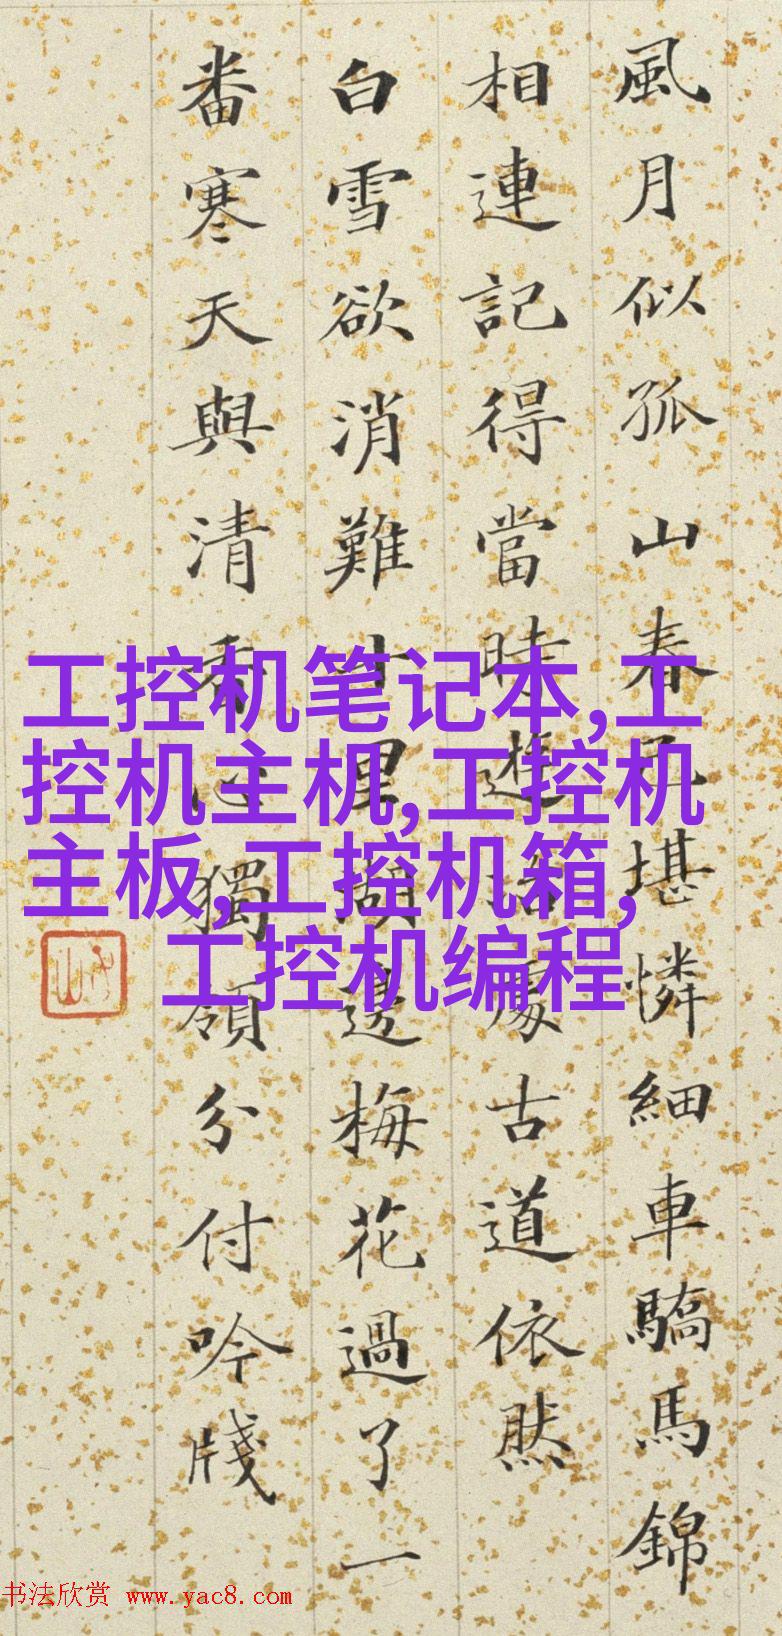 風月似孤山春堪憐細車驕馬錦
相連記得當時遊處古道依然
白雪欲消難十里湖邊梅花過了一
番寒天與清香心獨領分付吟牋
工控机笔记本,工
控机主机,工控机
主板,工控机箱,
工控机编程
书法欣赏 www.yac8.com